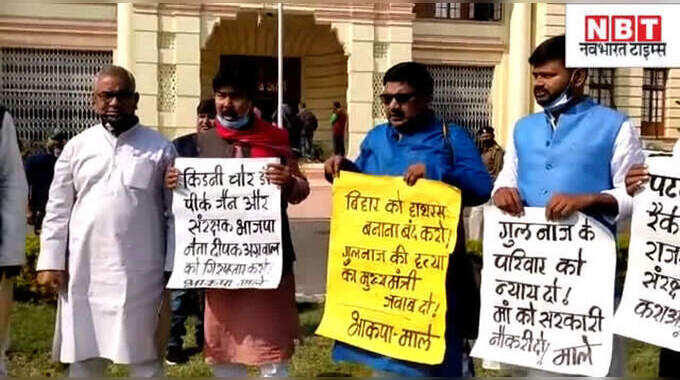 NBT
नवभारत टाइम्स
किडनी चोर डॉ
पीके जैन और
संरक्षक भाजपा
नेता दीपक अग्रवाल
को गिरफ्तार करो!
भाकपा-माले
बिहार को हाथरस
बनाना बंद करो!
गुलनाज की हत्या
का मुख्यमंत्री
जवाब दो!
भाकपा-माले
गुलनाज के
परिवार को
न्याय दो!
मां को सरकारी
नौकरी दो! माले